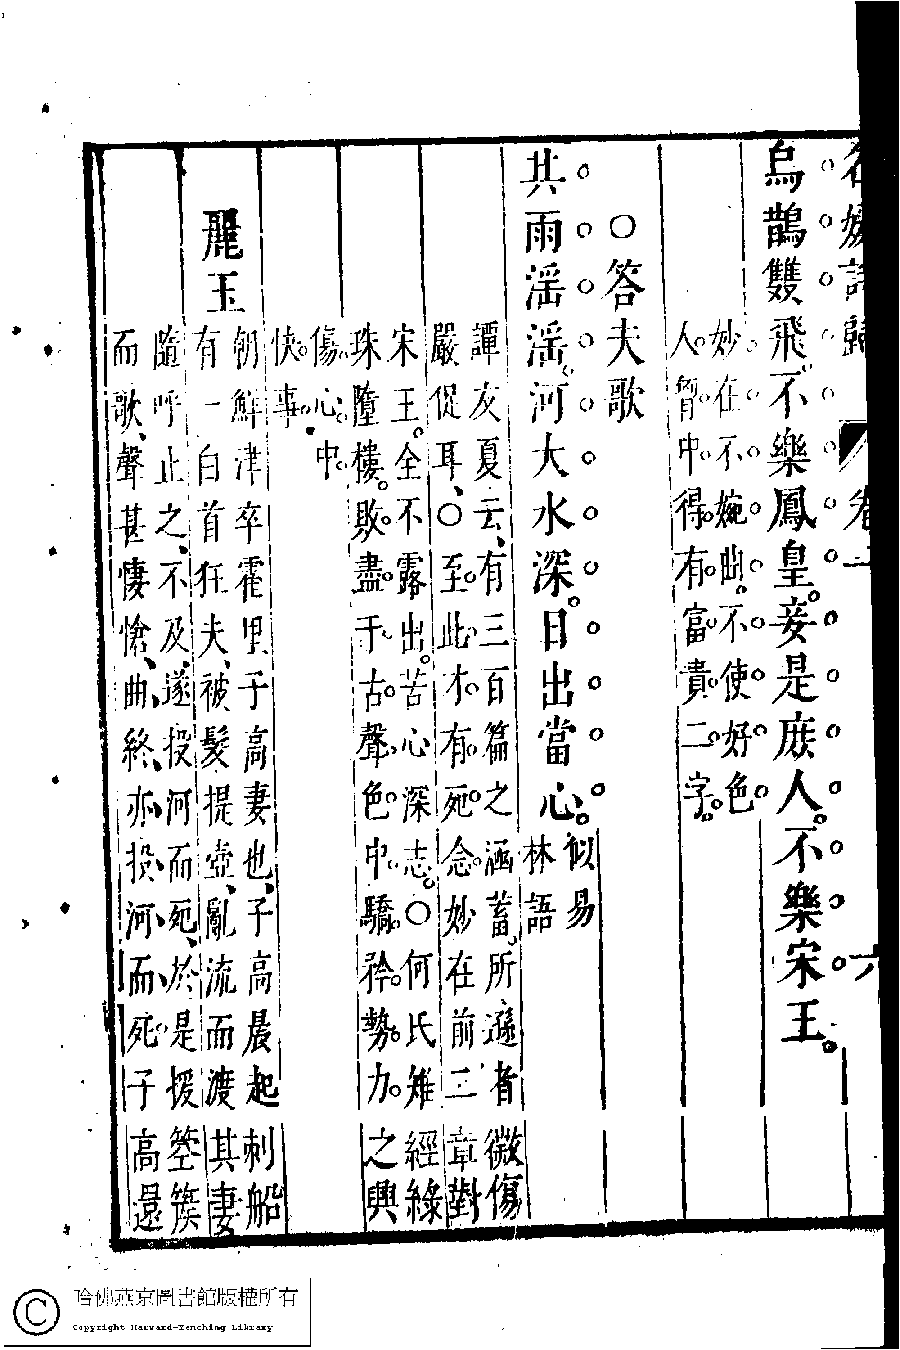 名媛詩歸 卷一 六
烏鵲雙飛不樂鳳皇妾是庻人不樂宋王
妙在不婉曲不使好色
人智中得有富貴二字
○答夫歌
共雨滛滛河大水深日出當心
似易
林語
譚友夏云有三百篇之涵蓄所遜者微傷
嚴促耳○至此才有死念妙在前二章對
宋王全不露出苦心深志○何氏雉經綠
珠墮樓敗盡千古聲色中驕矜勢力之興
傷心中
快事
麗玉
朝鮮津卒霍里子高妻也子高晨起刺船
有一白首狂夫被髮提壺亂流而渡其妻
隨呼止之不及遂投河而死於是援箜篌
而歌聲甚悽愴曲終亦投河而死子高還
哈佛燕京圖書館版權所有
Copyright Harvard-Yenching Library